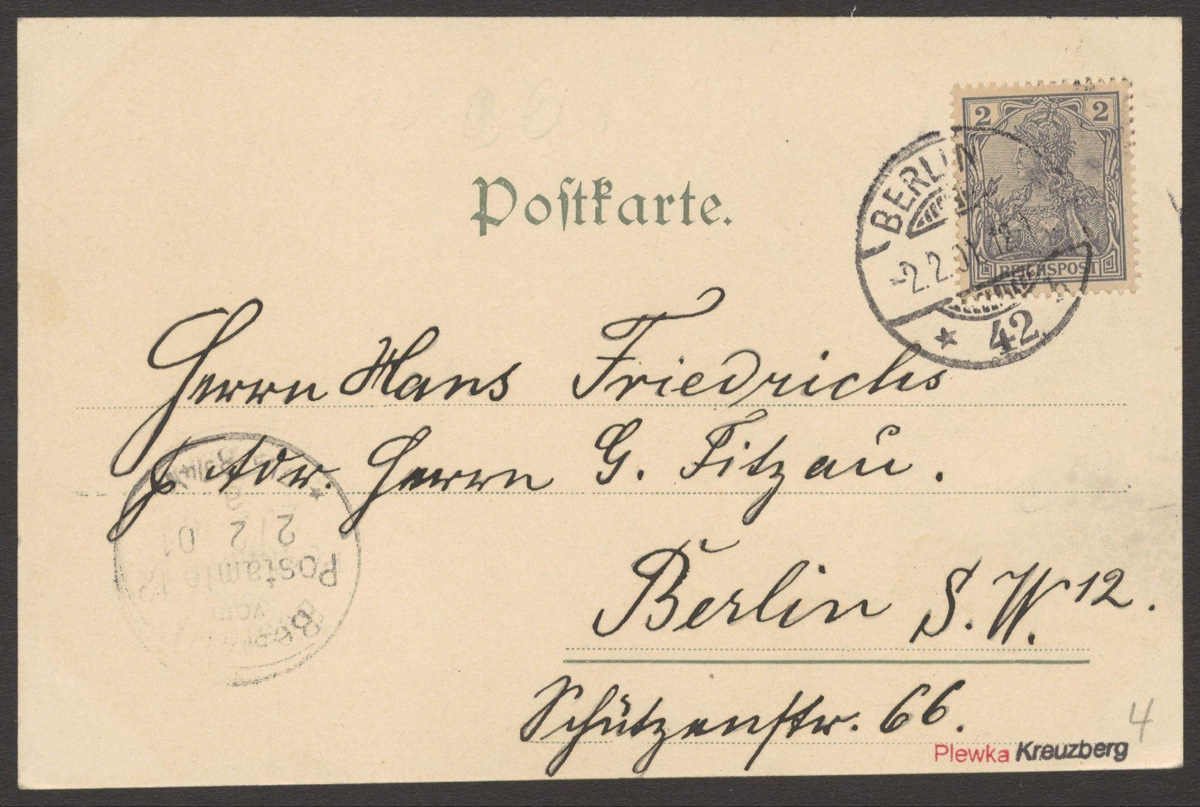 2 2
REICHSPOST
BERLIN
-2.2.01. 12-1
* 42
Postkarte.
Herrn Hans Friedrichs
Adr. Herrn G. Fitzau.
Berlin S. W. 12.
Schützenstr. 66.
Postamte 12
vom
2/2 01
Plewka Kreuzberg
4